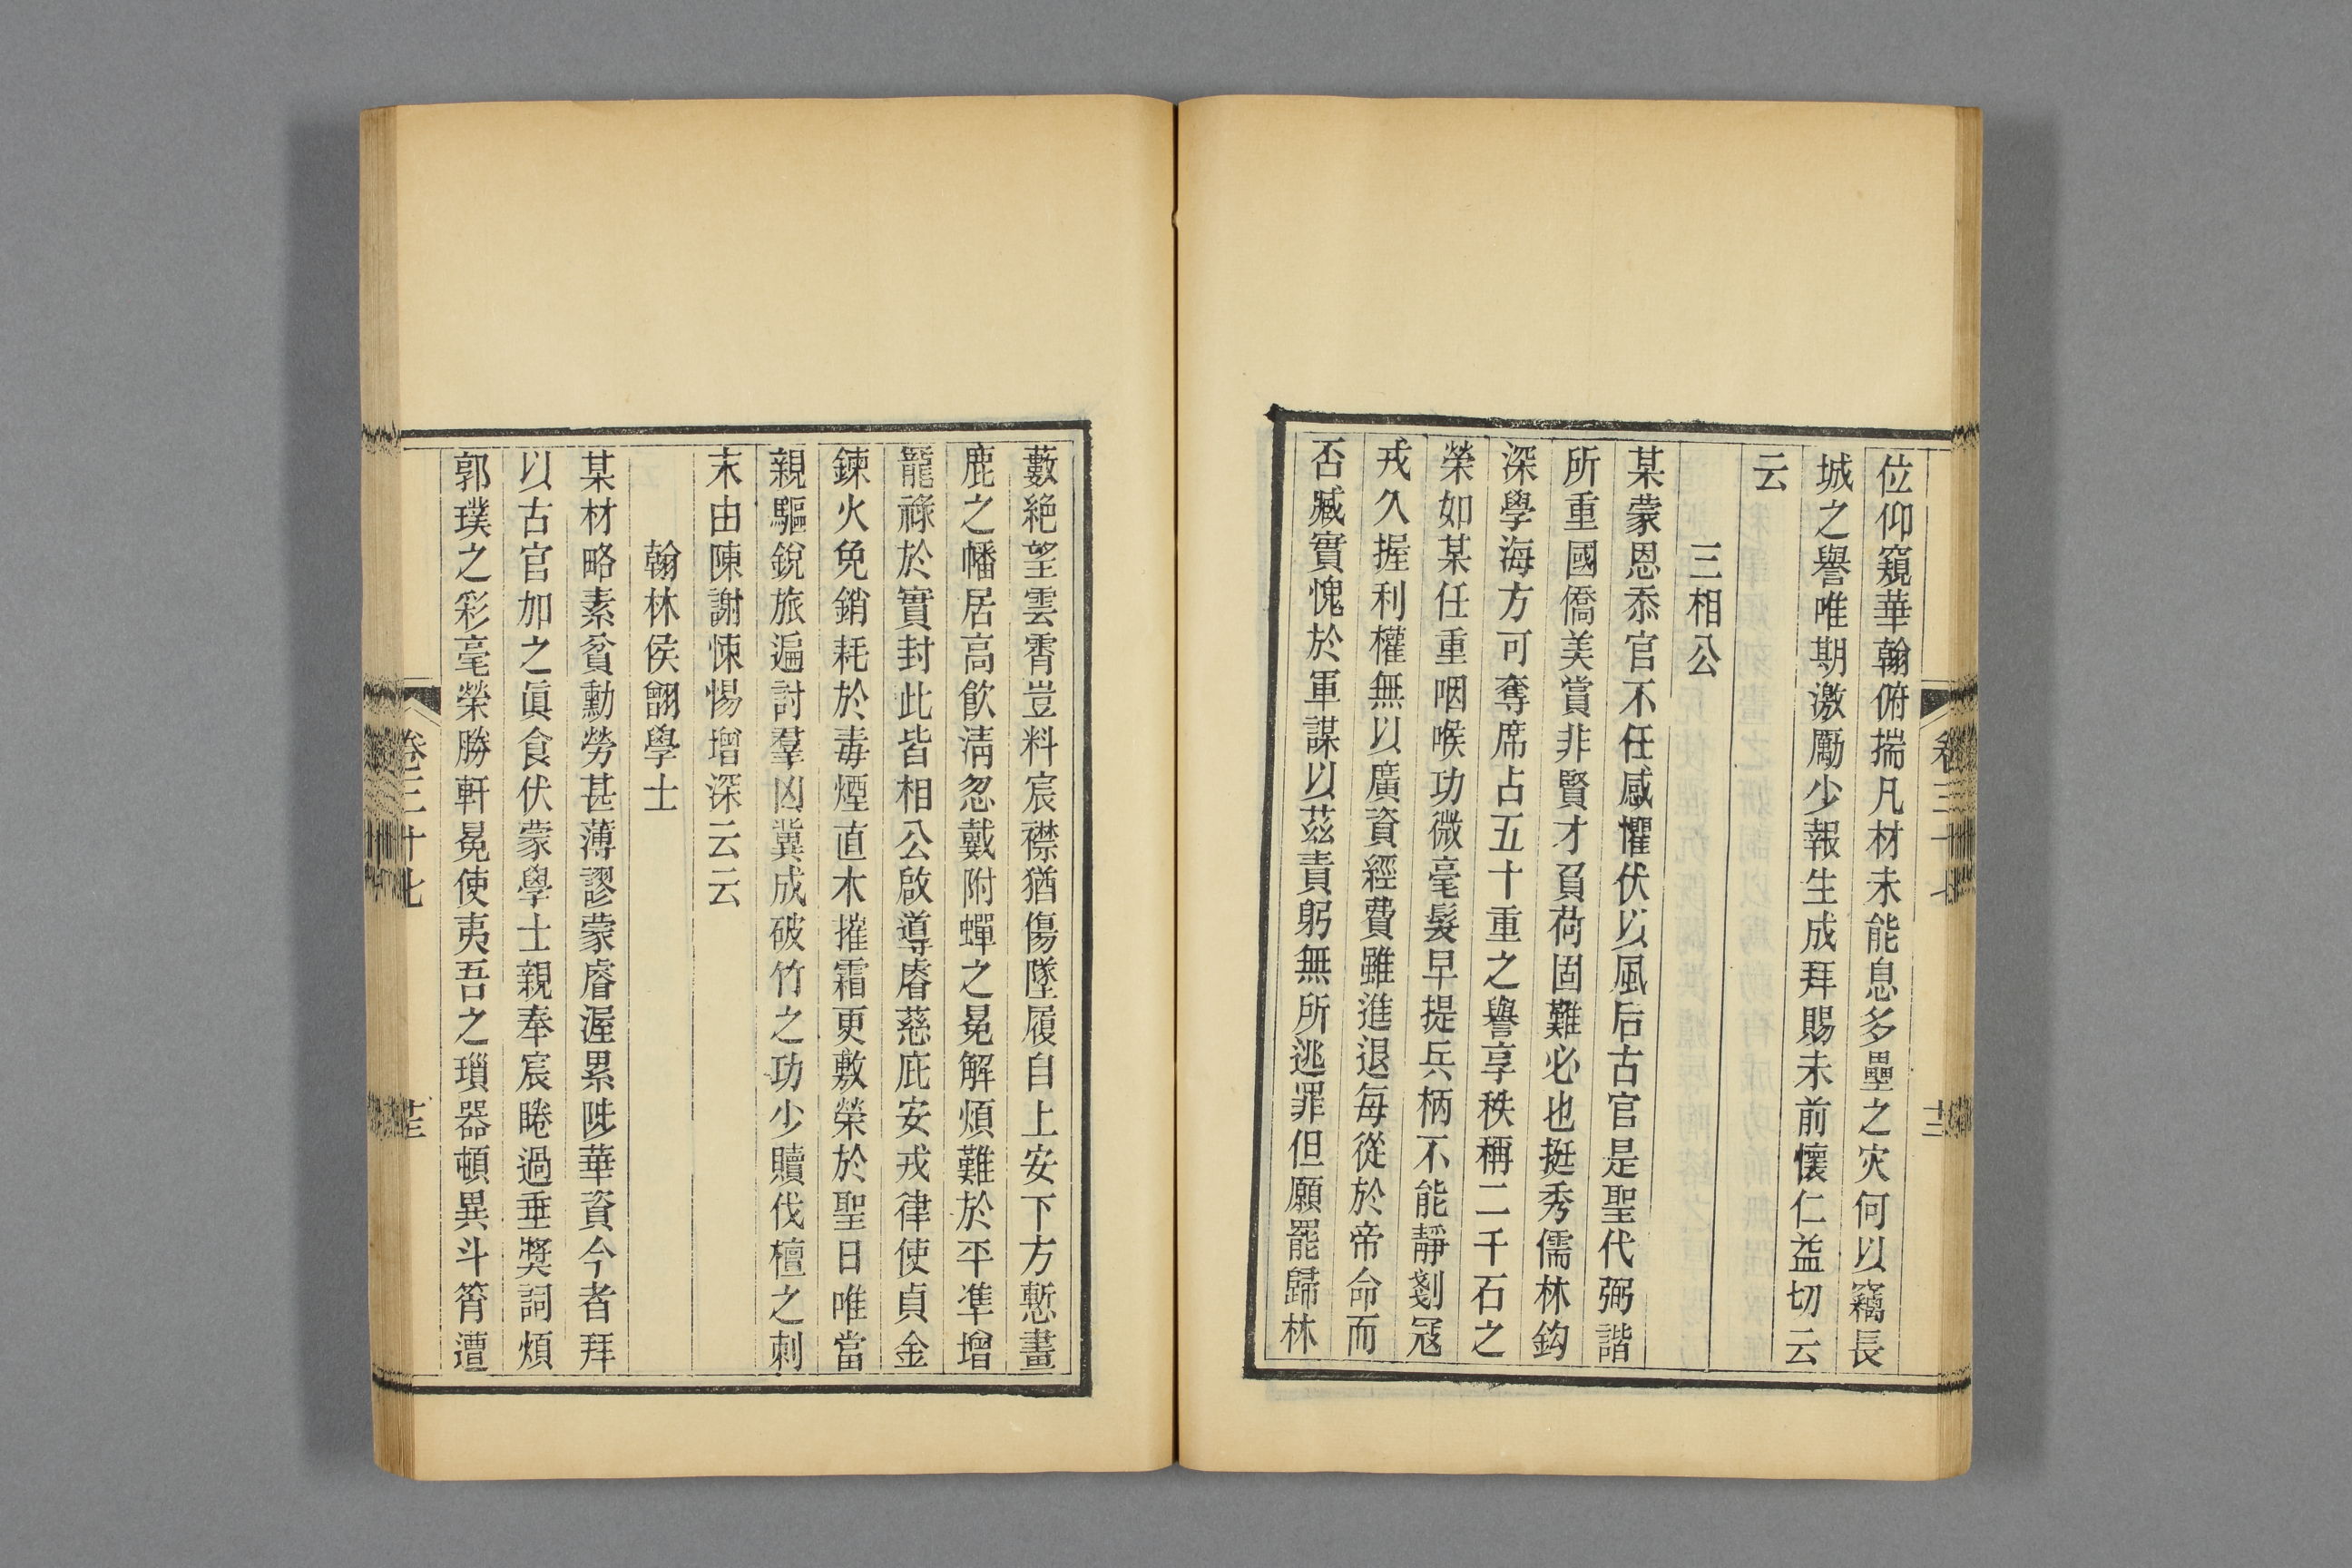 位仰窺華翰俯揣凡材未能息多壘之灾何以竊長
城之譽唯期激勵少報生成拜賜未前懷仁益切云
云
三相公
某蒙恩忝官不任感懼伏以風后古官是聖代弼諧
所重國僑美賞非賢才負荷固難必也挺秀儒林鈎
深學海方可奪席占五十重之譽享秩稱二千石之
榮如某任重咽喉功微毫髮早提兵柄不能靜剗寇
戎久握利權無以廣資經費雖進退每從於帝命而
否臧實愧於軍謀以茲責躬無所逃罪但願罷歸林
藪絕望雲霄豈料宸襟猶傷墜履自上安下方慙畫
鹿之幡居高飮淸忽戴附蟬之冕解煩難於平準增
寵祿於實封此皆相公啟導睿慈庇安戎律使貞金
鍊火免銷耗於毒煙直木摧霜更敷榮於聖日唯當
親驅銳旅遍討羣凶冀成破竹之功少贖伐檀之刺
末由陳謝悚惕增深云云
翰林侯翮學士
某材略素貧勳勞甚薄謬蒙睿渥累陟華資今者拜
以古官加之眞食伏蒙學士親奉宸睠過垂奬詞煩
郭璞之彩毫榮勝軒冕使夷吾之瑣器頓異斗筲遭
卷三十七